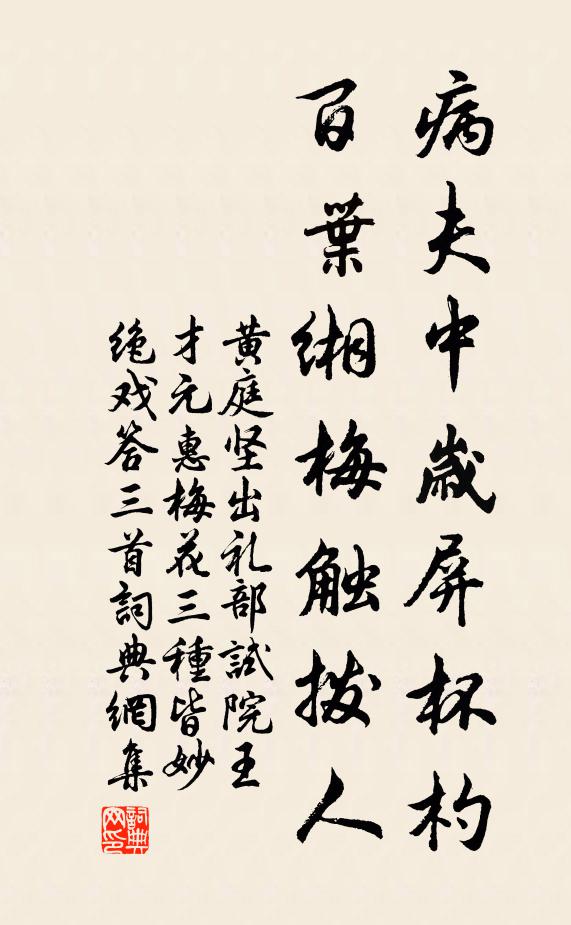 病夫中歳屏杯杓
百葉緗梅触拨人
黄庭坚出礼部試院王
才元惠梅花三種皆妙
绝戏答三首詞典網集
詞典网印